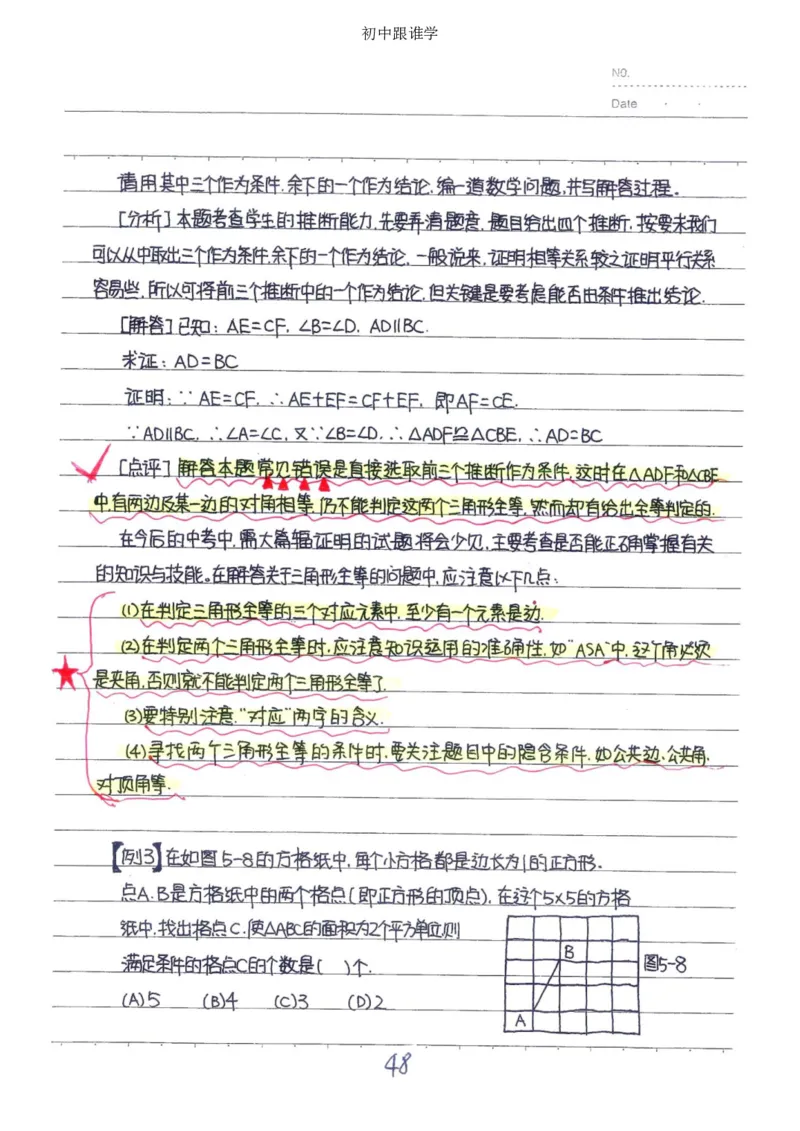 初中跟谁学
NO.
Date
请用其中三个作为条件.余下的一个作为结论.编一道数学问题,并写解答过程.
[分析]本题考查学生的推断能力,先要弄清题意.题目给出四个推断,按要求我们
可以从中取出三个作为条件.余下的一个作为结论.一般说来,证明相等关系较之证明平行关系
容易些,所以可将前三个推断中的一个作为结论.但关键是要考虑能否由条件推出结论.
[解答]已知:AE=CF.∠B=∠D.AD∥BC.
求证:AD=BC
证明:∵AE=CF,∴AE+EF=CF+EF.即AF=CE.
∵AD∥BC,∴∠A=∠C,又∵∠B=∠D,∴△ADF≌△CBE,∴AD=BC
[点评]解答本题常见错误是直接选取前三个推断作为条件.这时在△ADF和△CBE
中,有两边及某一边的对角相等.仍不能判定这两个三角形全等,然而却有给出全等判定的.
在今后的中考中,需大篇辐证明的试题将会少见,主要考查是否能正确掌握有关
的知识与技能。在解答关于三角形全等的问题中,应注意以下几点:
(1)在判定三角形全等的三个对应元素中,至少有一个元素是边.
(2)在判定两个三角形全等时,应注意知识运用的准确性.如"ASA"中.这个角必须
是夹角,否则就不能判定两个三角形全等了.
(3)要特别注意."对应"两字的含义.
(4)寻找两个三角形全等的条件时.要关注题目中的隐含条件.如公共边.公共角.
对顶角等.
【例3】在如图5-8的方格纸中,每个小方格都是边长为1的正方形.
点A.B是方格纸中的两个格点(即正方形的顶点),在这个5×5的方格
纸中,找出格点C.使△ABC的面积为2个平方单位,则
满足条件的格点C的个数是( )个.
(A)5 (B)4 (C)3 (D)2
B
A
图5-8
48